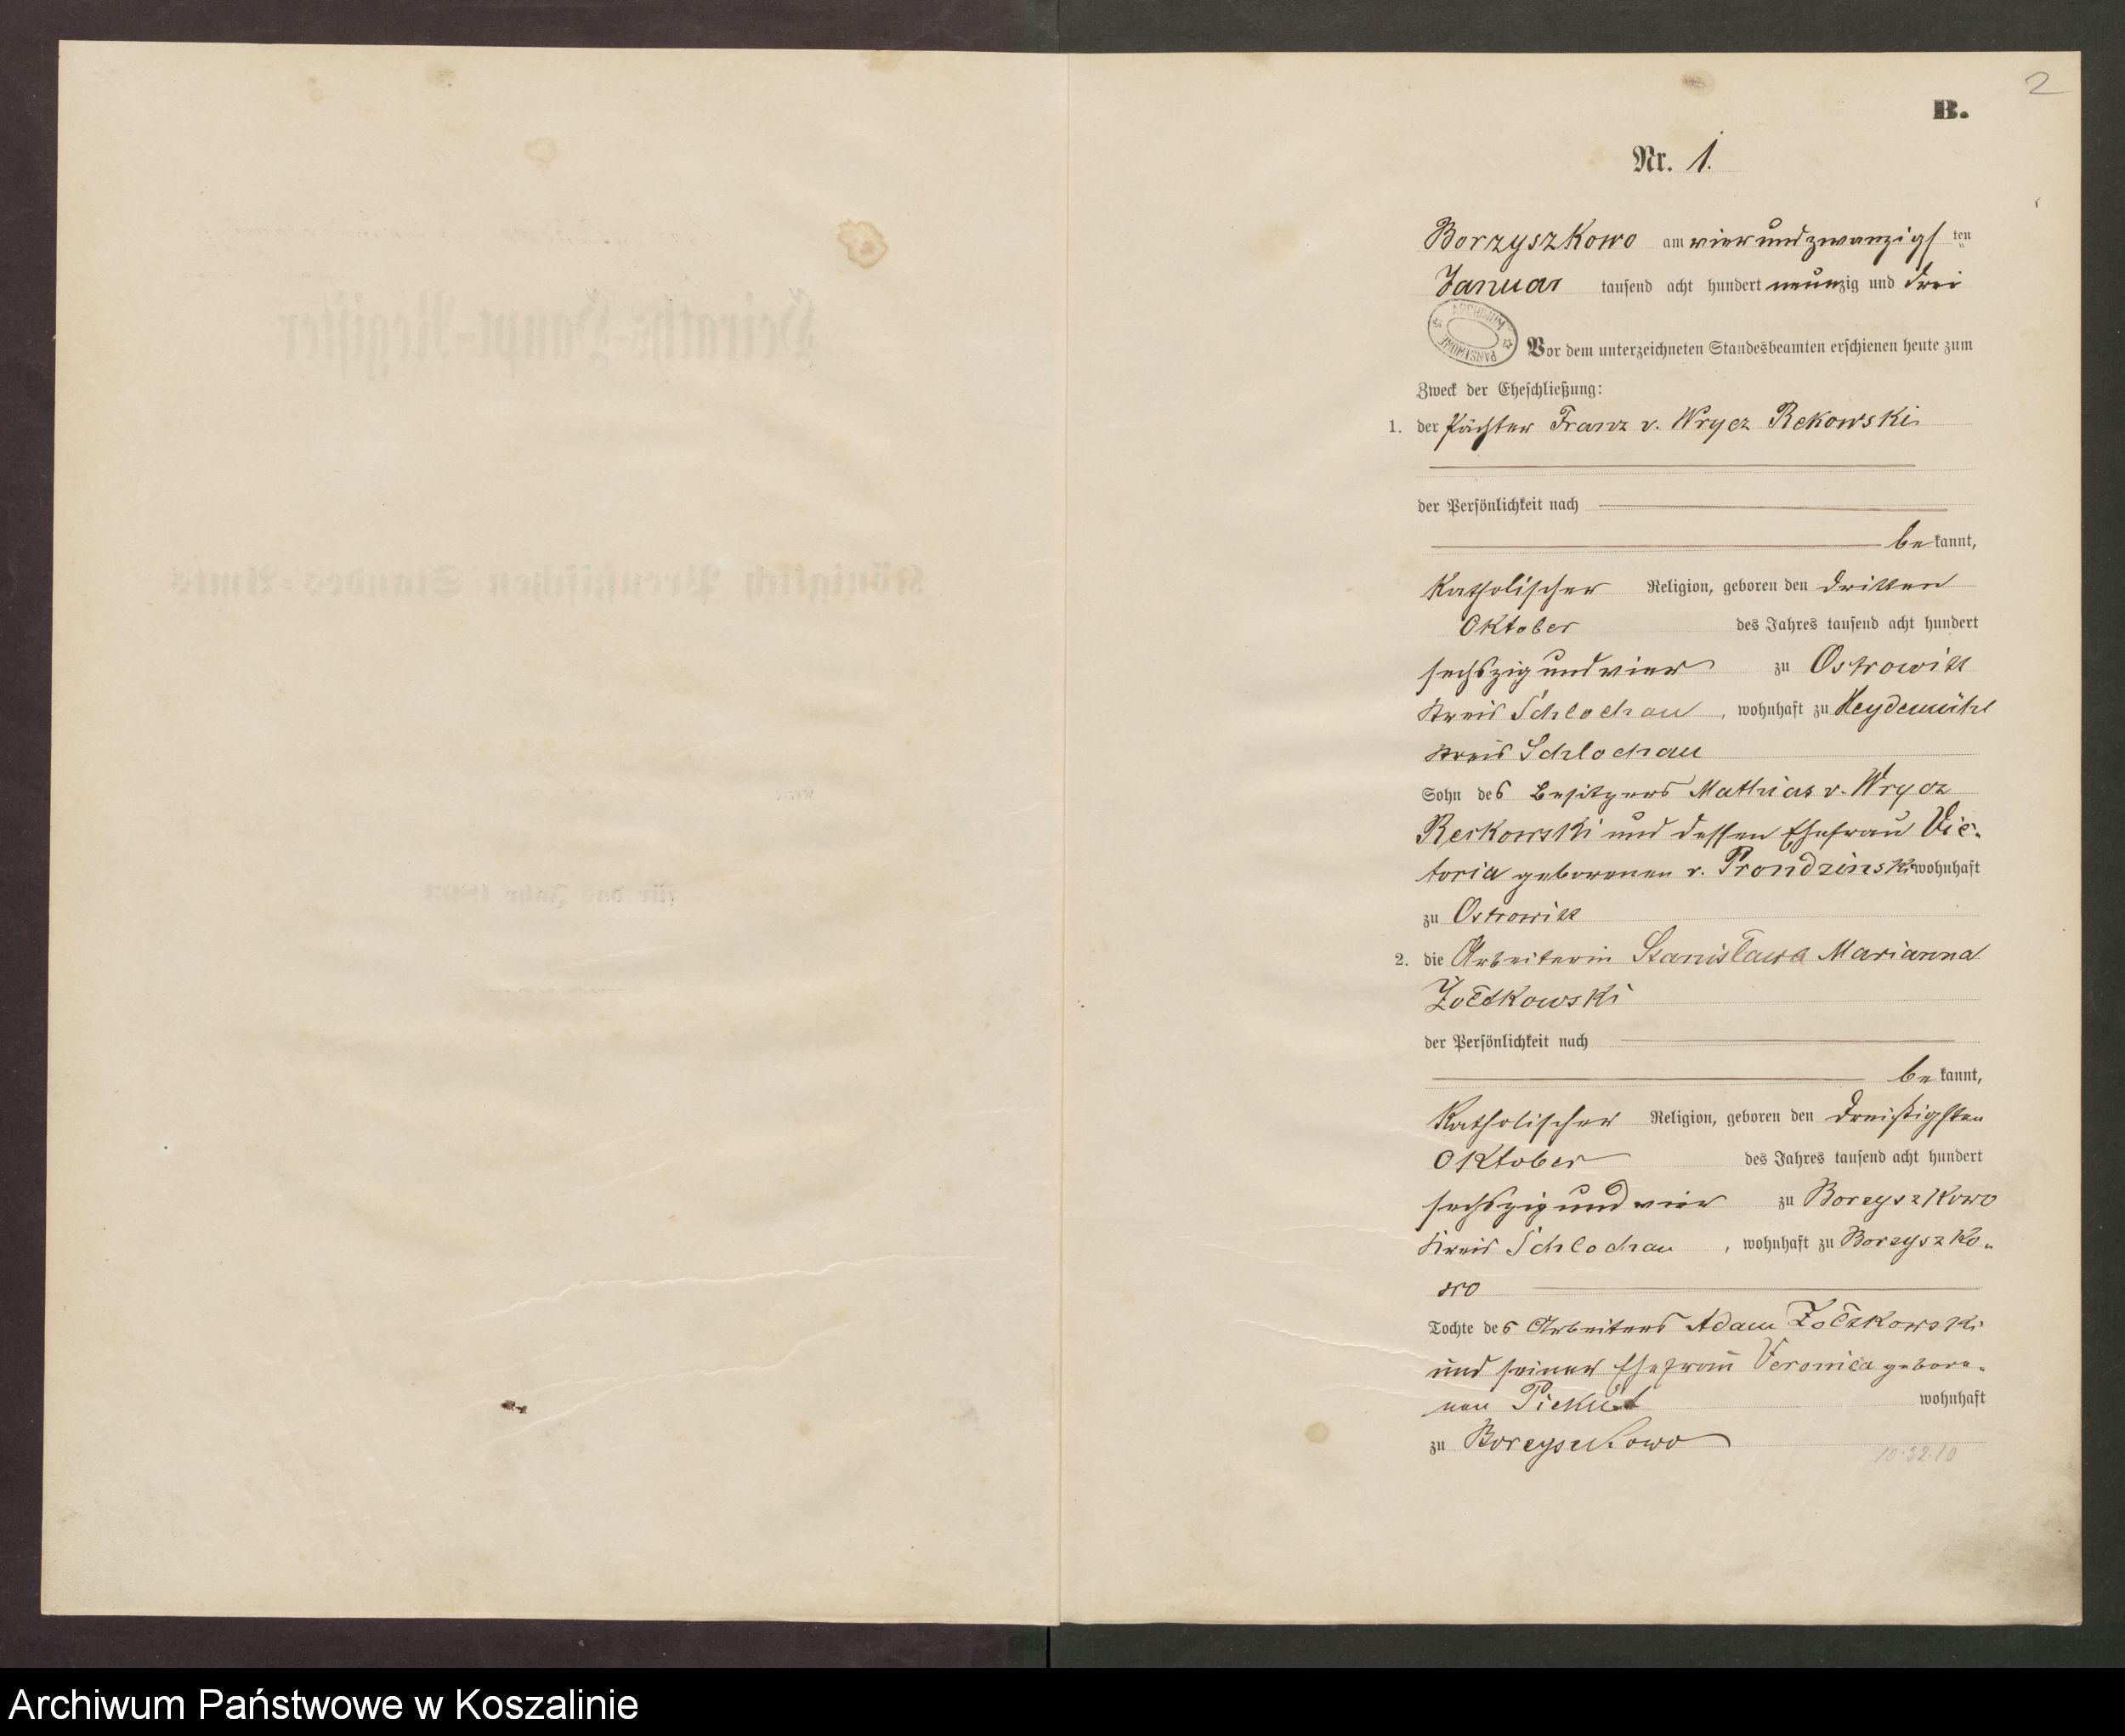 2
B.
Nr. 1.
Borzyszkowo am vierundzwanzigs ten
Januar tausend acht hundert neunzig und drei
ARCHIWUM PAŃSTWOWE
Vor dem unterzeichneten Standesbeamten erschienen heute zum
Zweck der Eheschließung:
1. der Pächter Franz v. Wrycz Rekowski
der Persönlichkeit nach
be kannt,
katholischer Religion, geboren den dritten
Oktober des Jahres tausend acht hundert
sechszig und vier zu Ostrowitt
Kreis Schlochau, wohnhaft zu Heydemühl
Kreis Schlochau
Sohn des Besitzers Mathias v. Wrycz
Reckowski und dessen Ehefrau Vic-
toria geborenen v. Prondzinski wohnhaft
zu Ostrowitt
2. die Arbeiterin Stanisława Marianna
Żołtkowski
der Persönlichkeit nach
be kannt,
katholischer Religion, geboren den dreißigsten
Oktober des Jahres tausend acht hundert
sechszig und vier zu Borzyszkowo
Kreis Schlochau, wohnhaft zu Borzyszko-
wo
Tochte des Arbeiters Adam Żołtkowski
und seiner Ehefrau Veronica gebore-
nen Piekut wohnhaft
zu Borzyszkowo
Heiraths-Haupt-Register
Königlich Preußischen Standes-Amts
für das Jahr 1893
Archiwum Państwowe w Koszalinie